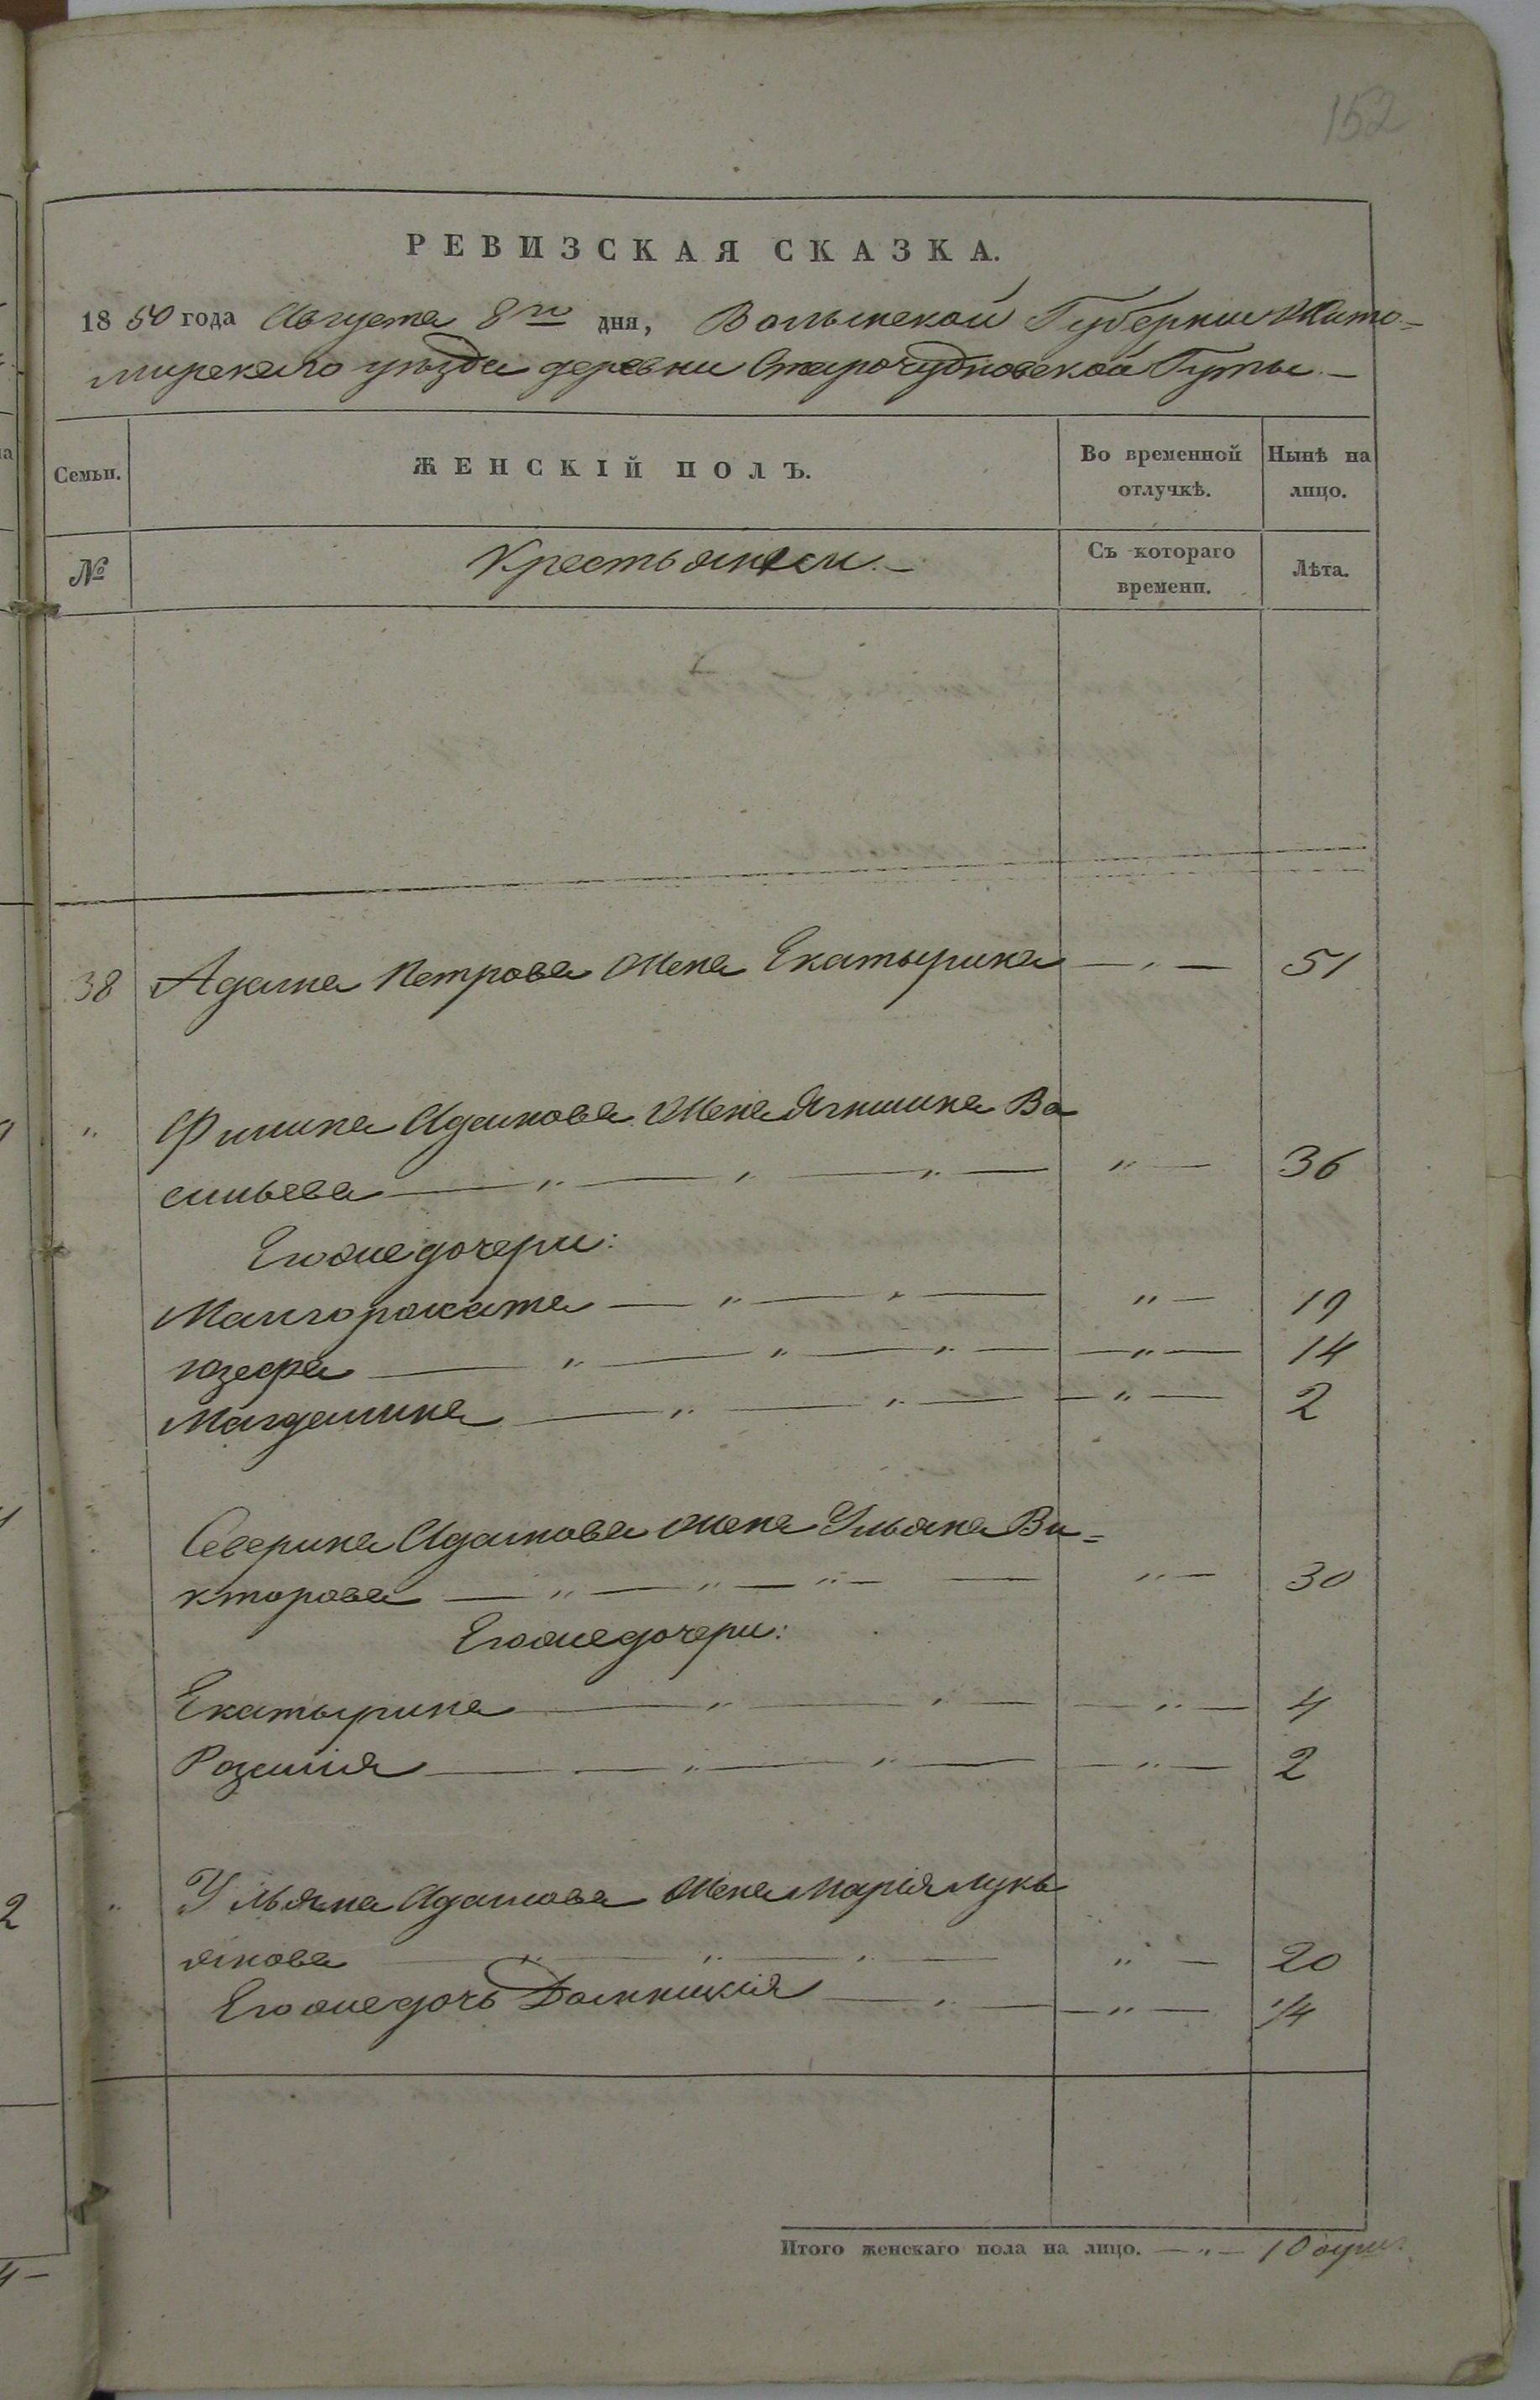 152
РЕВИЗСКАЯ СКАЗКА.
1850 года Августа 8го дня, Волынской Губернии Жито-
мирскаго уѣзда деревни Старочудновской Гуты.—
Семьи. ЖЕНСКІЙ ПОЛЪ. Во временной отлучкѣ. Нынѣ на лицо.
№ Крестьянеи.— Съ котораго времени. Лѣта.
38 Адама Петрова жена Екатырина — „ — 51
„ Филипа Адамова жена Ягнишка Ва
сильева — „ — „ — „ — „ — 36
Егоже дочери:
Малгоржата — „ — „ — „ — 19
Юзефа — „ — „ — „ — „ — 14
Магдалина — „ — „ — „ — 2
Северина Адамова жена Ульяна Ви-
кторова — „ — „ — „ — „ — 30
Егоже дочери:
Екатырина — „ — „ — „ — 4
Розалия — „ — „ — „ — 2
„ Ульяна Адамова жена Марія Лукь
янова — „ — „ — „ — „ — 20
Егоже дочь Домникія — „ — „ — 1/4
Итого женскаго пола на лицо. — „ — 10 душ.